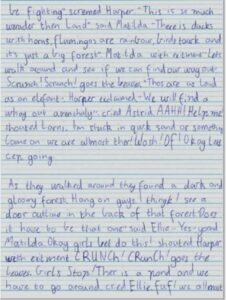 be fighting" scremed Harper "This is so much
wonder then Land" said Matilda "There is ducks
with horns, flumingos are rainbow, birds
and
it's just a big forest" Matilda with extiment "Lets
walk around and see if we can find our way out."
Scrunch! Scrunch! goes the leaves. "Thos are as Loud
as an elephant. Harper exclamed "We will find a
whay out
cried Astrid. AAHH! Helps me
shouted
I'm stuck in quick sand or something
Come on we are allmost ther. Wosh! Of! Okay Lets
cep going.
As they walked around they found a dark and
gloomy forest. Hang on guys I think I see a
door outline in the back of that forest. Does
it have to be that one" said Ellie "Yes"
Matilda. Okay girls let do this! shouted Harper
with extiment. CRUNCH! CRUNCH! goes the
leaves. Girls Stop! Ther is a pond and we
have to go around cried Ellie. Fuf! we allmost